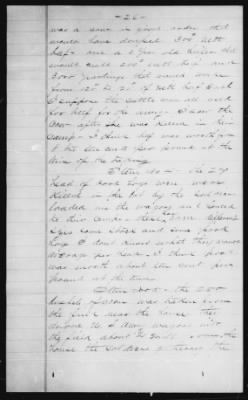 -26-
was a cow in good order that
would have dressed 300 lbs nett
beef and a 2 year old heifer that
would nett 200 lbs nett beef and
3 or 4 yearlings that would
from 125 to 150 lbs nett beef each
I suppose the cattle were all used
for beef for the army. I saw the
cow after she was killed in their
camp. I think beef was worth from
8 to 10 cents per pound at the
time of the taking
Item No 4. The 27
head of stock hogs were
killed in the lot by the soldiers
loaded in the wagons and hauled
to this camp.
some stock and some good
hogs I don't know what they would
average per head. I think pork
was worth about ten cents per
pound at the time
Item No 5. the 250
bushels of corn was taken from
the field near the house they
drove the army wagons into
the field about
house the soldiers gathering the